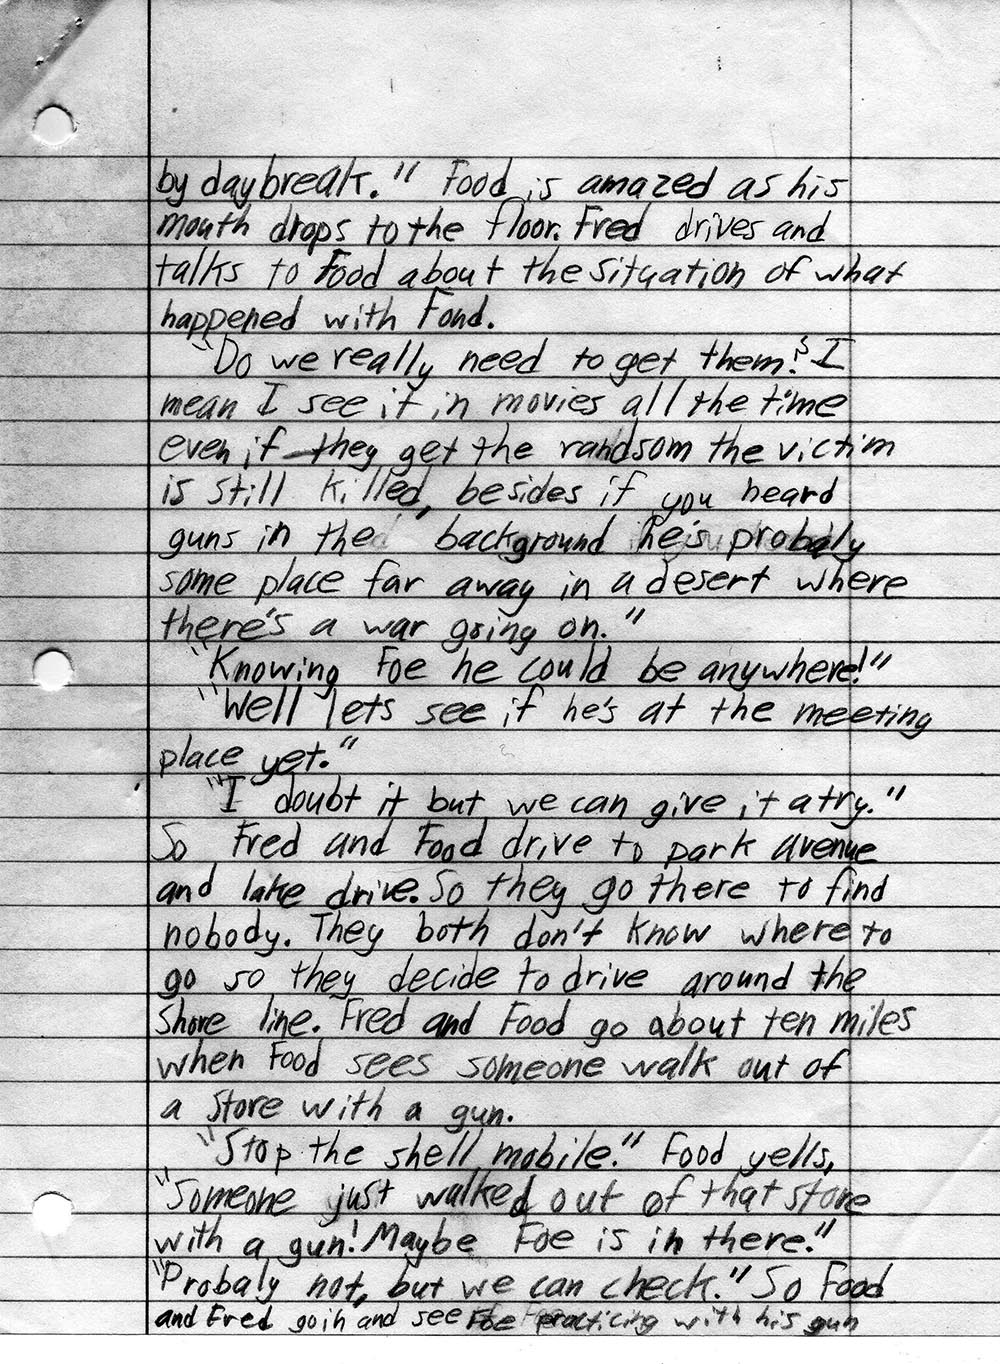 by daybreak." Food is amazed as his
mouth drops to the floor. Fred drives and
talks to Food about the situation of what
happened with Fond.
"Do we really need to get them? I
mean I see it in movies all the time
even if they get the randsom the victim
is still killed, besides if you heard
guns in the background he's probaly
some place far away in a desert where
there's a war going on."
"Knowing Foe he could be anywhere!"
"Well lets see if he's at the meeting
place yet."
"I doubt it but we can give it a try."
So Fred and Food drive to park avenue
and lake drive. So they go there to find
nobody. They both don't know where to
go so they decide to drive around the
shore line. Fred and Food go about ten miles
when Food sees someone walk out of
a store with a gun.
"Stop the shell mobile." Food yells,
"Someone just walked out of that store
with a gun! Maybe Foe is in there."
"Probaly not, but we can check." So Food
and Fred go in and see Foe practicing with his gun